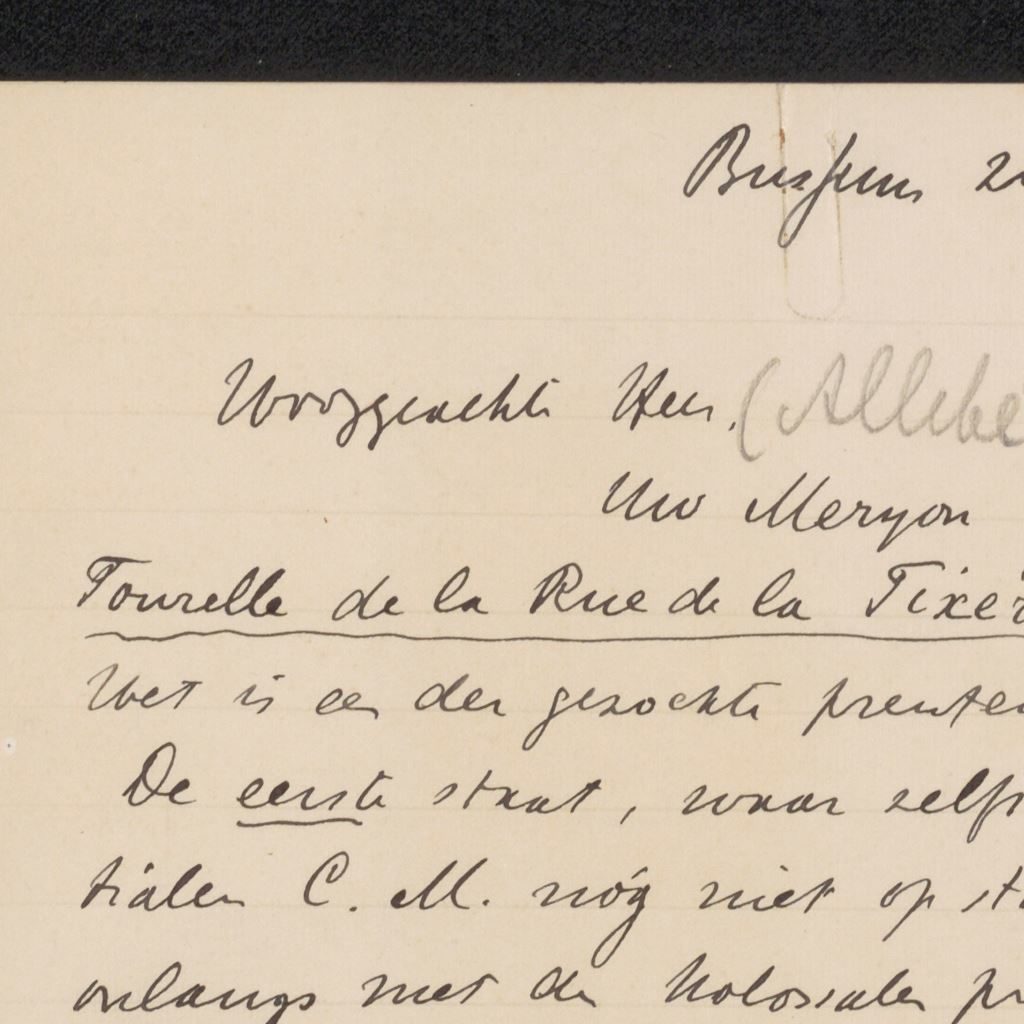 Bussum 2
Hooggeachte Heer, (Allebe
Uw Meryon
Tourelle de la Rue de la Tixé
Het is een der gezochte prenten
De eerste staat, waar zelfs
tialen C. M. nóg niet op st
onlangs met den kolossalen pr